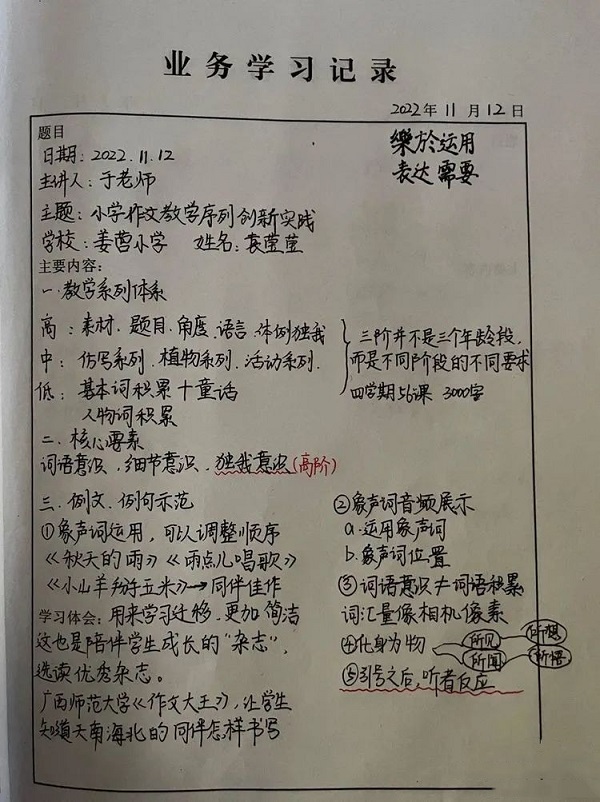 业务学习记录
2022年11月12日
题目
乐於运用
表达需要
日期：2022.11.12
主讲人：于老师
主题：小学作文教学序列创新实践
学校：姜营小学 姓名：袁莹莹
主要内容：
一.教学系列体系
高：素材.题目.角度.语言.体例独我
中：仿写系列.植物系列.活动系列.
低：基本词积累+童话
人物词积累
三阶并不是三个年龄段，
而是不同阶段的不同要求
四学期56课 3000字
二.核心要素
词语意识.细节意识.独我意识(高阶)
三.例文.例句示范
①象声词运用，可以调整顺序
《秋天的雨》《雨点儿唱歌》
《小山羊掰玉米》→同伴佳作
学习体会：用来学习迁移.更加简洁
这也是陪伴学生成长的“杂志”，
选读优秀杂志。
广西师范大学《作文大王》，让学生
知道天南海北的同伴怎样书写
②象声词音频展示
a.运用象声词
b.象声词位置
③词语意识≠词语积累
词汇量像相机像素
④化身为物 所见 所想
所闻 所悟
⑤引号之后，听者反应